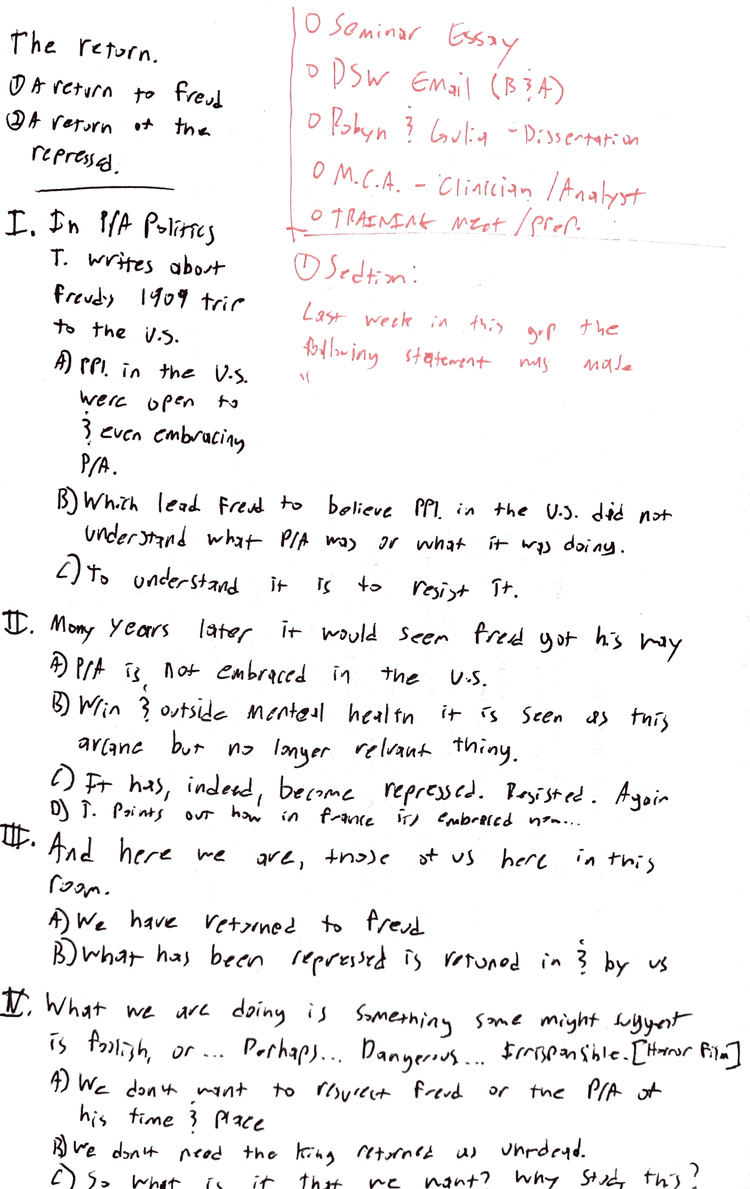 The return.
① A return to Freud
② A return of the
repressed.
O Seminar Essay
O DSW Email (B & A)
O Robyn & Giulia - Dissertation
O M.C.A. - Clinician / Analyst
O TRAINING MEET / PREP.
I. In P/A Politics
T. writes about
Freud's 1909 trip
to the U.S.
A) PPl. in the U.S.
were open to
& even embracing
P/A.
① Sedtion:
Last week in this grp the
following statement was made
"
B) Which lead Freud to believe PPl. in the U.S. did not
understand what P/A was or what it was doing.
C) To understand it is to resist it.
II. Many years later it would seem Freud got his way
A) P/A is not embraced in the U.S.
B) W/in & outside mental health it is seen as this
arcane but no longer relvant thing.
C) It has, indeed, become repressed. Resisted. Again
D) T. Points out how in France it's embraced now...
III. And here we are, those of us here in this
room.
A) We have returned to Freud
B) What has been repressed is retuned in & by us
IV. What we are doing is something some might suggest
is foolish, or... Perhaps... Dangerous... Irrisponsible. [Horror Film]
A) We don't want to resurect Freud or the P/A of
his time & place
B) We don't need the King returned as undead.
C) So what is it that we want? Why study this?